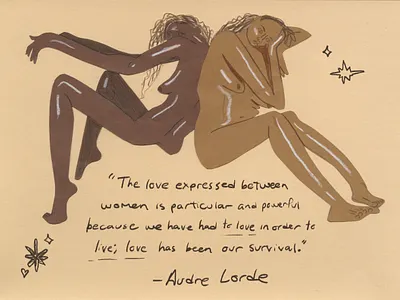 "The love expressed between
women is particular and powerful
because we have had to love in order to
live; love has been our survival."
—Audre Lorde